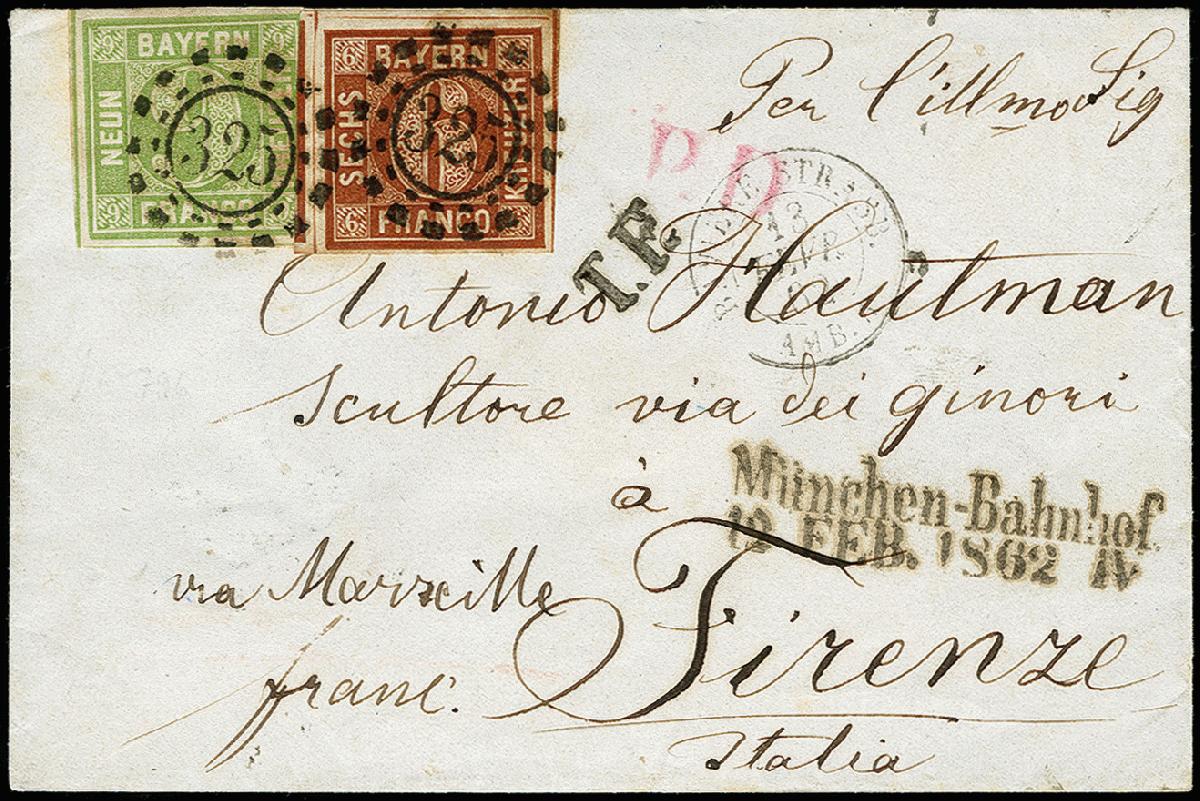 9 BAYERN 9
NEUN
9 FRANCO
325
6 BAYERN
SECHS
KREUZER
6 FRANCO
325
Per l'illmo Sig
P.D.
T.F.
STRASB.
13
FEVR.
62
AMB.
Antonio Hautman
Scultore via dei ginori
à
München-Bahnhof
12 FEB. 1862 IV
via Marzeille
Firenze
franc.
Italia